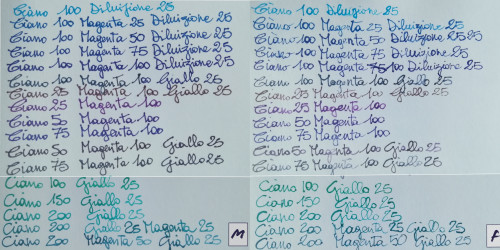 Ciano 100 Diluizione 25
Ciano 100 Magenta 25 Diluizione 25
Ciano 100 Magenta 50 Diluizione 25
Ciano 100 Magenta 75 Diluizione 25
Ciano 100 Magenta 100 Diluizione 25
Ciano 100 Magenta 100 Giallo 25
Ciano 25 Magenta 100 Giallo 25
Ciano 25 Magenta 100
Ciano 50 Magenta 100
Ciano 75 Magenta 100
Ciano 50 Magenta 100 Giallo 25
Ciano 75 Magenta 100 Giallo 25
Ciano 100 Giallo 25
Ciano 150 Giallo 25
Ciano 200 Giallo 25
Ciano 200 Giallo 25 Magenta 25
Ciano 200 Magenta 50 Giallo 25
M
Ciano 100 Diluizione 25
Ciano 100 Magenta 25 Diluizione 25
Ciano 100 Magenta 50 Diluizione 25
Ciano 100 Magenta 75 Diluizione 25
Ciano 100 Magenta 100 Diluizione 25
Ciano 100 Magenta 100 Giallo 25
Ciano 25 Magenta 100 Giallo 25
Ciano 25 Magenta 100
Ciano 50 Magenta 100
Ciano 75 Magenta 100
Ciano 50 Magenta 100 Giallo 25
Ciano 75 Magenta 100 Giallo 25
Ciano 100 Giallo 25
Ciano 150 Giallo 25
Ciano 200 Giallo 25
Ciano 200 Magenta 25 Giallo 25
Ciano 200 Magenta 50 Giallo 25